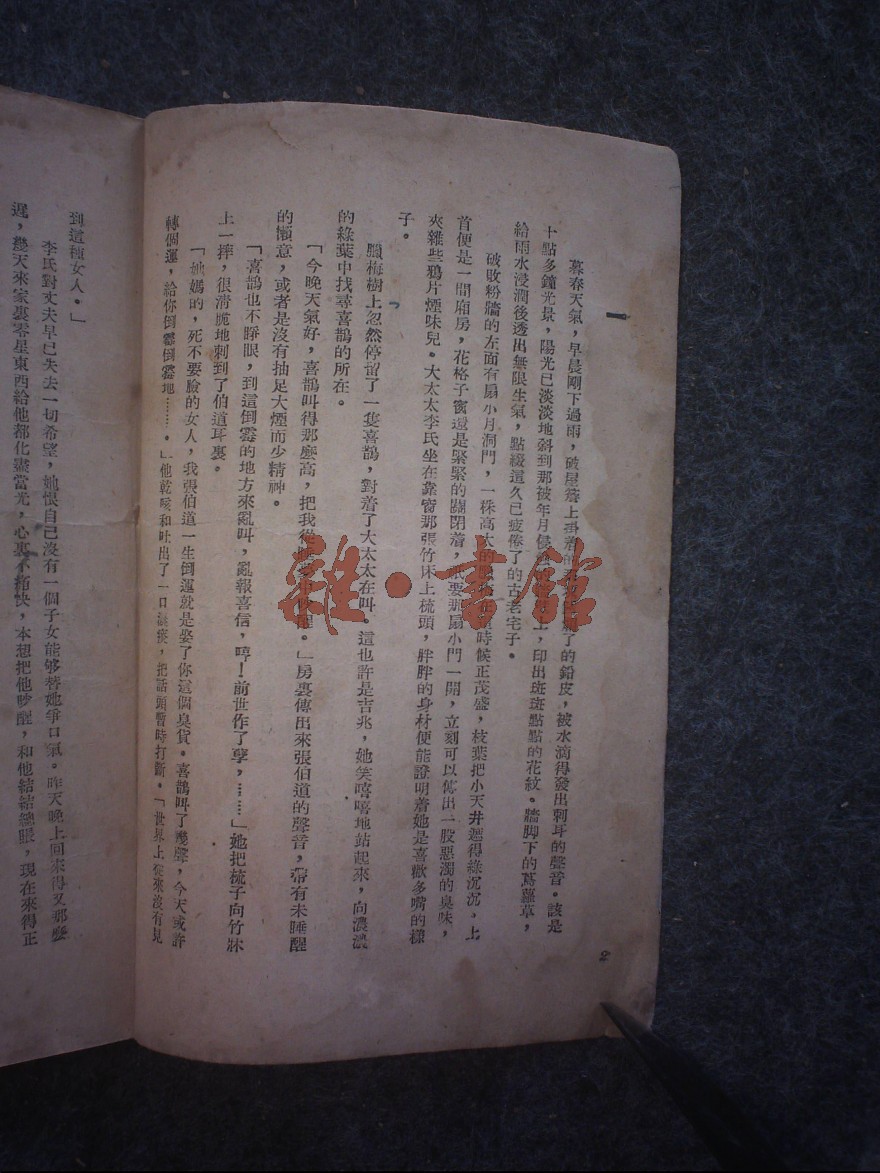 一
暮春天氣，早晨剛下過雨，破屋簷上掛着的了的鉛皮，被水滴得發出刺耳的聲音。該是
十點多鐘光景，陽光已淡淡地斜到那被年月侵上，印出斑斑點點的花紋。牆脚下的蔦蘿草，
給雨水浸潤後透出無限生氣，點綴這久已疲倦了的古老宅子。
破敗粉牆的左面有扇小月洞門，一株高大的時候正茂盛，枝葉把小天井遮得綠沉沉。上
首便是一間廂房，花格子窗還是緊緊的關閉着，祇要那扇小門一開，立刻可以傳出一股惡濁的臭味，
夾雜些鴉片煙味兒。大太太李氏坐在靠窗那張竹床上梳頭，胖胖的身材便能證明着她是喜歡多嘴的樣
子。
臘梅樹上忽然停留了一隻喜鵲，對着了大太太在叫。這也許是吉兆，她笑嘻嘻地站起來，向濃濃
的綠葉中找尋喜鵲的所在。
「今晚天氣好，喜鵲叫得那麼高，把我從醒。」房裏傳出來張伯道的聲音，帶有未睡醒
的懶意，或者是沒有抽足大煙而少精神。
「喜鵲也不睜眼，到這倒霉的地方來亂叫，亂報喜信，哼！前世作了孽，……」她把梳子向竹牀
上一摔，很清脆地刺到了伯道耳裏。
「她媽的，死不要臉的女人，我張伯道一生倒運就是娶了你這個臭貨。喜鵲叫了幾聲，今天或許
轉個運，給你倒霉倒霉地……。」他乾咳和吐出了一口濃痰，把話頭暫時打斷。「世界上從來沒有見
到這種女人。」
李氏對丈夫早已失去一切希望，她恨自己沒有一個子女能够替她爭口氣。昨天晚上回來得又那麼
遲，幾天來家裏零星東西給他都化盡當光，心裏不痛快，本想把他吵醒，和他結結總賬，現在來得正
雜·書館